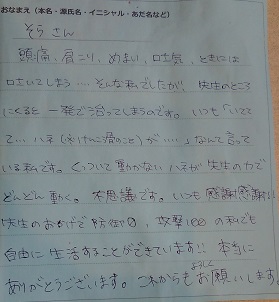 おなまえ（本名・源氏名・イニシャル・あだ名など）
そら さん
頭痛、肩こり、めまい、吐き気、ときには
吐いてしまう…. そんな私でしたが、先生のところ
にくると一発で治ってしまうのです。いつも「いてて
て… ハネ(けんこう骨のこと)が….」なんて言って
いる私です。くっついて動かないハネが先生の力で
どんどん動く。不思議です。いつも感謝感謝!!
先生のおかげで防御0、攻撃100の私でも
自由に生活することができています!! 本当に
ありがとうございます。これからもよろしくお願いします